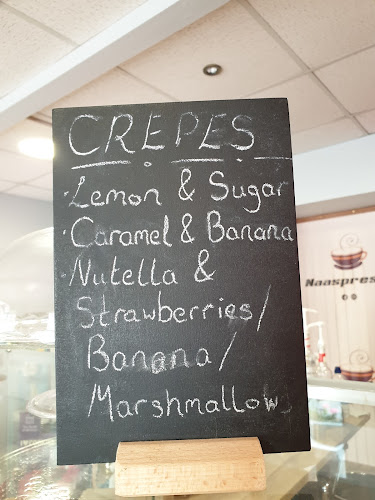 CREPES
· Lemon & Sugar
· Caramel & Banana
· Nutella &
Strawberries/
Banana/
Marshmallows